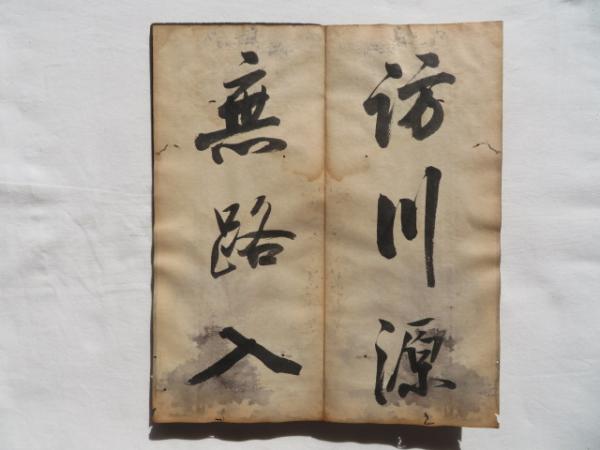 訪川源
無路入